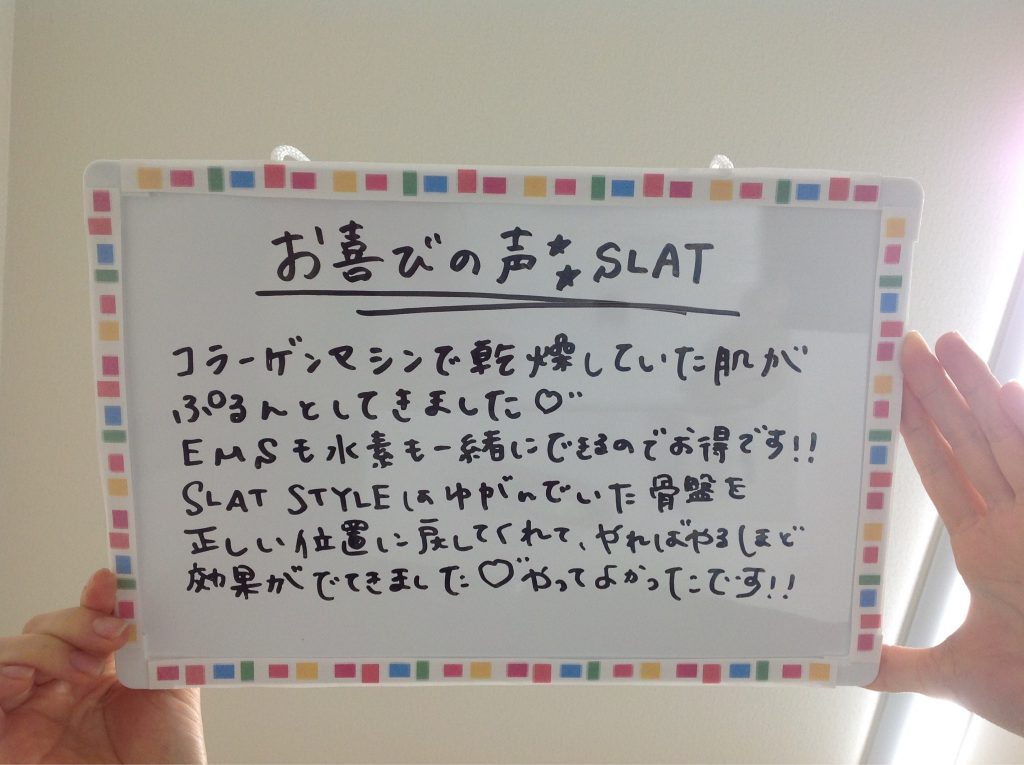 お喜びの声★★SLAT
コラーゲンマシンで乾燥していた肌が
ぷるんとしてきました♡
EMSも水素も一緒にできるのでお得です!!
SLAT STYLEはゆがんでいた骨盤を
正しい位置に戻してくれて、やればやるほど
効果がでてきました♡やってよかったです!!